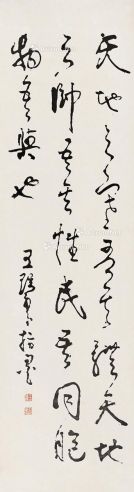 天地之塞吾其體天地
之帥吾其性民吾同胞
物吾與也
王
指墨